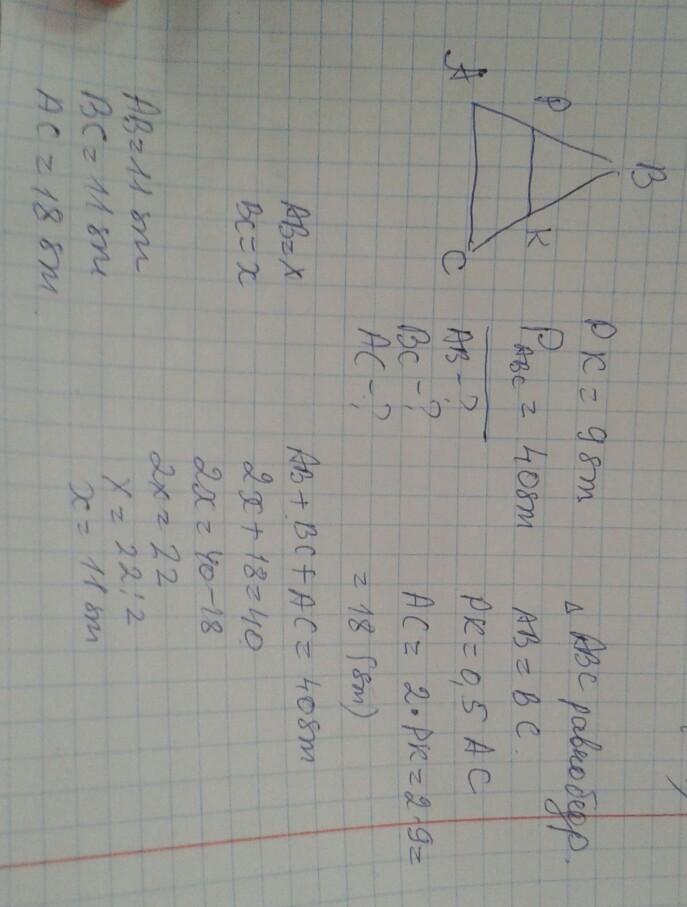 A
P
B
K
C
PK = 9 см
P ABC = 40 см
AB - ?
BC - ?
AC - ?
Δ ABC равнобедр.
AB = BC.
PK = 0,5 AC
AC = 2 · PK = 2 · 9 =
= 18 (см)
AB = x
BC = x
AB + BC + AC = 40 см
2x + 18 = 40
2x = 40 - 18
2x = 22
x = 22 : 2
x = 11 см
AB = 11 см
BC = 11 см
AC = 18 см